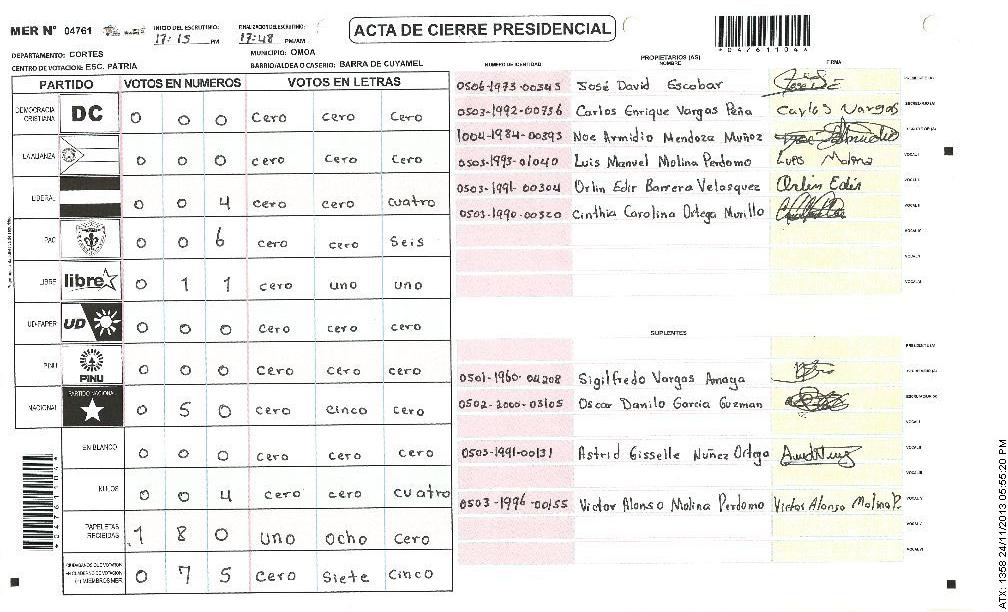 MER Nº 04761
INICIO DEL ESCRUTINIO: 17:15 PM
FINALIZACION DEL ESCRUTINIO: 17:48 PM/AM
ACTA DE CIERRE PRESIDENCIAL
DEPARTAMENTO: CORTES
MUNICIPIO: OMOA
CENTRO DE VOTACION: ESC. PATRIA
BARRIO/ALDEA O CASERIO: BARRA DE CUYAMEL
PARTIDO VOTOS EN NUMEROS VOTOS EN LETRAS
DEMOCRACIA CRISTIANA DC 0 0 0 cero cero cero
LA ALIANZA 0 0 0 cero cero cero
LIBERAL 0 0 4 cero cero cuatro
PAC 0 0 6 cero cero seis
LIBRE libre 0 1 1 cero uno uno
UD-FAPER UD 0 0 0 cero cero cero
PINU PINU 0 0 0 cero cero cero
NACIONAL PARTIDO NACIONAL 0 5 0 cero cinco cero
EN BLANCO 0 0 0 cero cero cero
NULOS 0 0 4 cero cero cuatro
PAPELETAS RECIBIDAS 1 8 0 uno ocho cero
0 7 5 cero siete cinco
NUMERO DE IDENTIDAD
PROPIETARIOS (AS)
NOMBRE
FIRMA
0506-1973-00343 José David Escobar
0503-1992-00756 Carlos Enrique Vargas Peña Carlos Vargas
1004-1984-00393 Noe Armidio Mendoza Muñoz
0503-1993-01040 Luis Manuel Molina Perdomo Luis Molina
0503-1991-00304 Orlin Edir Barrera Velasquez Orlin Edir
0503-1990-00320 Cinthia Carolina Ortega Murillo
SUPLENTES
0501-1960-04208 Sigilfredo Vargas Amaya
0502-2000-03105 Oscar Danilo Garcia Guzman
0503-1991-00131 Astrid Gisselle Nuñez Ortega
0503-1996-00155 Victor Alonso Molina Perdomo Victor Alonso Molina P.
ATX: 1358 24/11/2013 05:55:20 PM